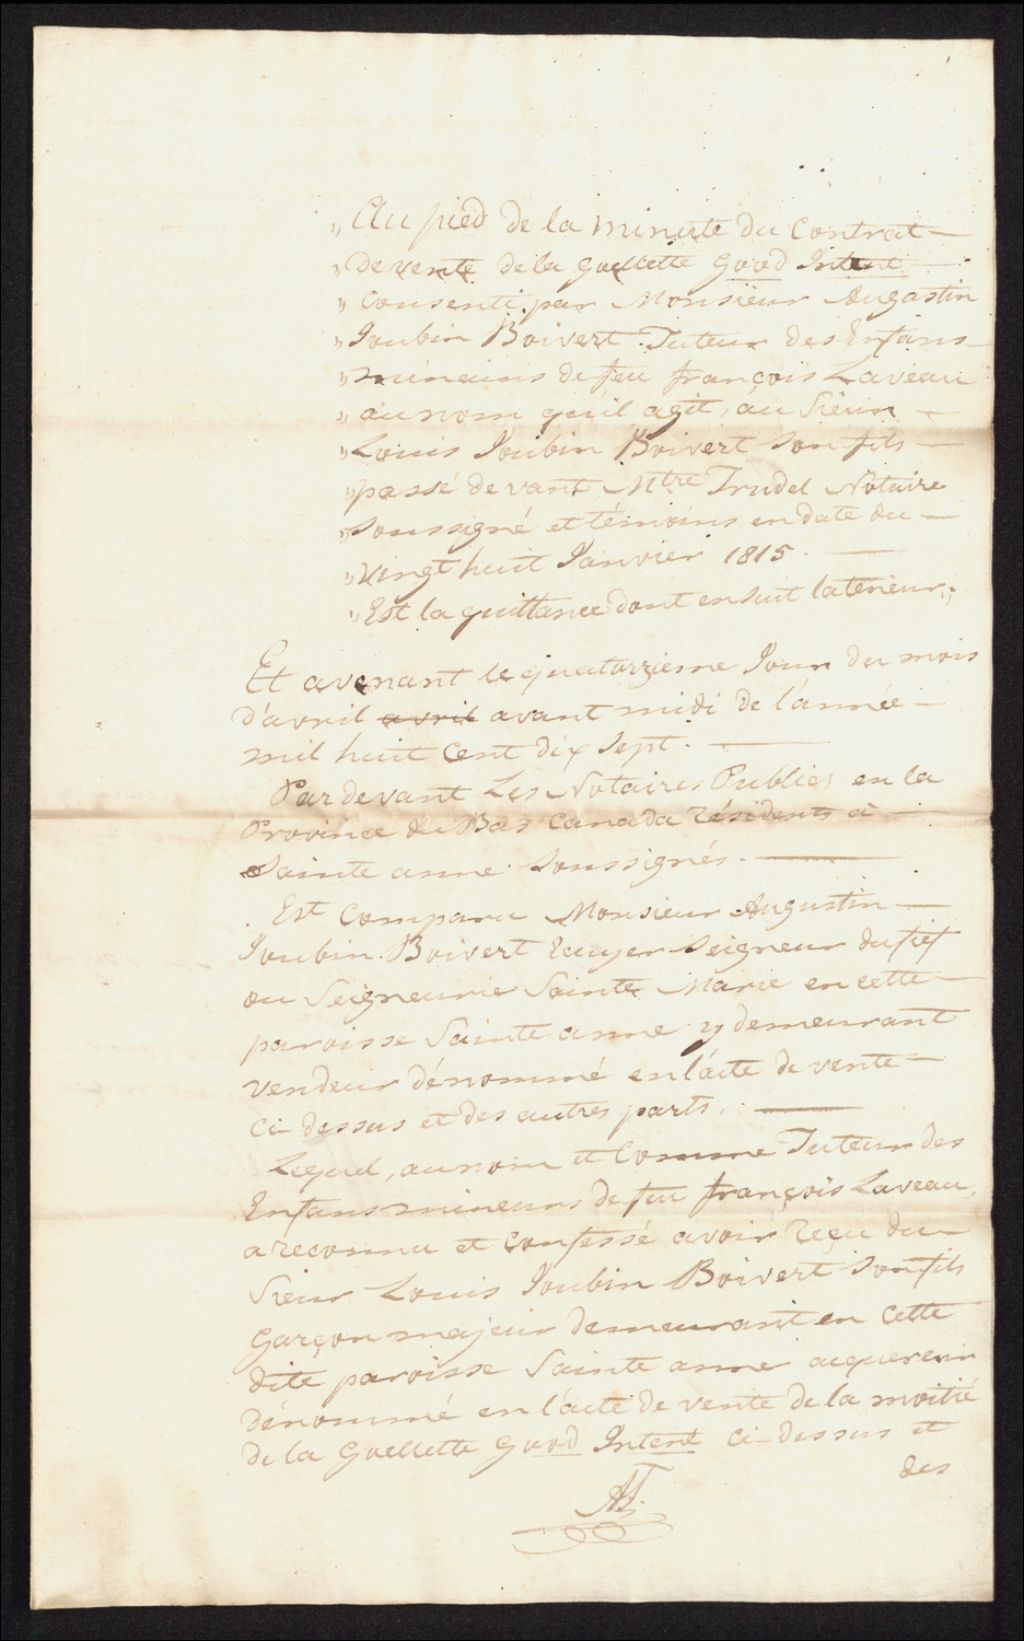 „ Au pied de la minute du Contrat —
„ de vente de la Goellette Good Intent —
„ Consenti par Monsieur Augustin
„ Joubin Boivert Tuteur des Enfans —
„ mineurs de feu françois Laveau
„ au nom qu'il agit, au Sieur —
„ Louis Joubin Boivert Son fils —
„ passé devant Mtre Trudel Notaire
„ Soussigné et témoins en date du —
„ vingt huit Janvier 1815. —
„ Est la quittance dont ensuit la teneur;
Et avenant le quatorzieme Jour du mois
d'avril avril avant midi de l'année —
mil huit Cent dix Sept. —
Par devant Les Notaires Publics en la
Province du Bas Canada résidents à —
Sainte anne Soussignés. —
Est Comparu Monsieur Augustin —
Joubin Boivert Ecuyer Seigneur du fief
ou Seigneurie Sainte Marie en cette —
paroisse Sainte anne y demeurant
vendeur dénommé en l'acte de vente —
Ci-dessus et des autres parts. —
Lequel, au nom et Comme Tuteur des
Enfans mineurs de feu françois Laveau,
a reconnu et confessé avoir reçu du —
Sieur Louis Joubin Boivert Son fils
Garçon majeur demeurant en Cette
dite paroisse Sainte anne acquereur
dénommé en l'acte de vente de la moitié
de la Goellette Good Intent Ci-dessus et
des
AT.